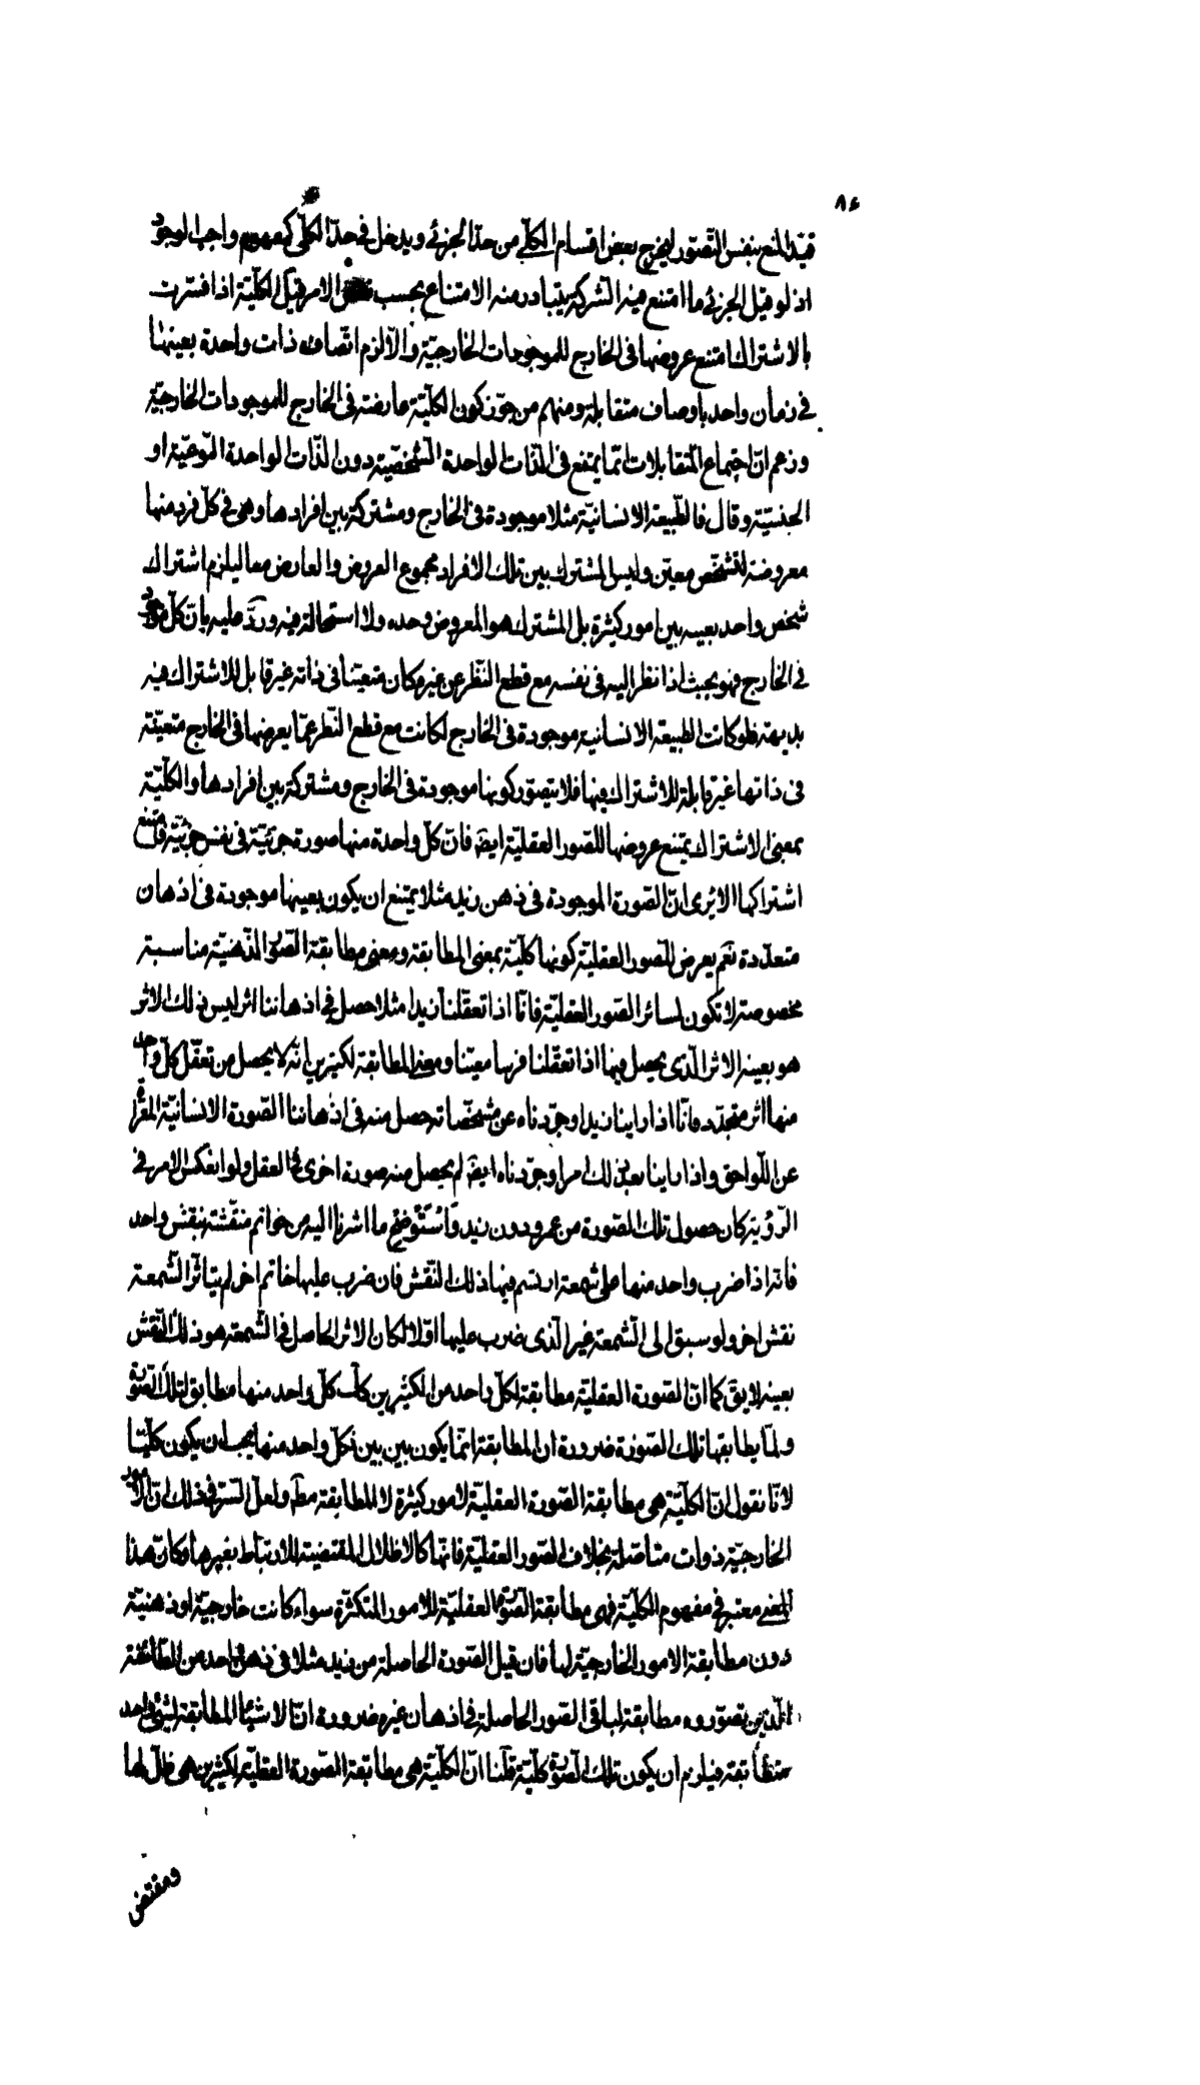 ٨٤
قيّد المنع بنفس التصوّر ليخرج بعض اقسام الكلّي من حدّ الجزئي و يدخل في حدّ الكلّي كمفهوم واجب الوجود
اذ لو قيل الجزئي ما امتنع فيه الشركة يتبادر منه الامتناع بحسب نفس الامر قيل الكليّة اذا فسّرت
بالاشتراك امتنع عروضها في الخارج للموجودات الخارجيّة و الّا لزم اتّصاف ذات واحدة بعينها
في زمان واحد باوصاف متقابلة و منهم من جوّز كون الكليّة عارضة في الخارج للموجودات الخارجيّة
و زعم انّ اجتماع المتقابلات انّما يمتنع في الذّات الواحدة الشّخصيّة دون الذّات الواحدة النّوعيّة او
الجنسيّة و قال فالطّبيعة الانسانيّة مثلا موجودة في الخارج و مشتركة بين افرادها و هى في كلّ فرد منها
معروضة لتشخّص معيّن و ليس المشترك بين تلك الافراد مجموع المعروض و العارض معا ليلزم اشتراك
شخص واحد بعينه بين امور كثيرة بل المشترك هو المعروض وحده و لا استحالة فيه و ردّ عليه بانّ كلّ موجود
في الخارج فهو بحيث اذا نظر اليه في نفسه مع قطع النّظر عن غيره كان متعيّنا في ذاته غير قابل للاشتراك فيه
بديهة فلو كانت الطبيعة الانسانيه موجودة في الخارج لكانت مع قطع النّظر عمّا يعرضها في الخارج متعيّنة
في ذاتها غير قابلة للاشتراك فيها فلا يتصوّر كونها موجودة في الخارج و مشتركة بين افرادها و الكليّة
بمعنى الاشتراك يمتنع عروضها للصّور العقليّة ايضَ فانّ كلّ واحدة منها صورة جزئيّة في نفس جزئيّة فامتنع
اشتراكها الا يرى انّ الصّورة الموجودة في ذهن زيد مثلا يمتنع ان يكون بعينها موجودة في اذهان
متعدّدة نعم يعرض للصّور العقليّة كونها كليّة بمعنى المطابقة و معنى مطابقة الصّور الذّهنيّة مناسبة
مخصوصة لا تكون لسائر الصّور العقليّة فانّا اذا تعقّلنا زيدا مثلا حصل في اذهاننا اثر ليس ذلك الاثر
هو بعينه الاثر الّذى يحصل فيها اذا تعقّلنا فرسا معيّنا و معنى المطابقة لكثيرين انّه لا يحصل من تعقّل كلّ واحد
منها اثر متجدّد فانّا اذا راينا زيدا و جرّدناه عن مشخّصاته حصل منه في اذهاننا الصّورة الانسانيّة المعرّاة
عن اللّواحق و اذا راينا بعد ذلك عمرا و جرّدناه ايضَ لم يحصل منه صورة اخرى في العقل و لو انعكس الامر في
الرّؤية كان حصول تلك الصّورة من عمرو دون زيد و استوضح ما اشرنا اليه من خواتم منقّشة بنقش واحد
فانّه اذا ضرب واحد منها على شمعة ارتسم فيها ذلك النّقش فان ضرب عليها خاتم اخر لم يتاثّر الشّمعة
نقش اخر و لو سبق الى الشّمعة غير الّذى ضرب عليها اوّلا لكان الاثر الحاصل في الشّمعة هو ذلك النّقش
بعينه لا يقَ كما انّ الصّورة العقليّة مطابقة لكلّ واحد من الكثيرين كآن كلّ واحد منها مطابق لتلك الصّورة
و لما يطابقها تلك الصّورة ضرورة انّ المطابقة انّما يكون بين بين فكلّ واحد منها يجب ان يكون كليّا
لانّا نقول انّ الكليّة هى مطابقة الصّورة العقليّة لامور كثيرة لا المطابقة مطَ و لعلّ السّرّ في ذلك انّ الامور
الخارجيّة ذوات متاصّلة بخلاف الصّور العقليّة فانّها كالاظلال المقتضية للارتباط بغيرها و كانّ هذا
المعنى معتبر في مفهوم الكليّة فهى مطابقة الصّورة العقليّة للامور المتكثّرة سواء كانت خارجيّة او ذهنيّة
دون مطابقة الامور الخارجيّة لها فان قيل الصّورة الحاصلة من زيد مثلا في ذهن واحد من الطّائفة
الّذين تصوّروه مطابقة لباقى الصّور الحاصلة في اذهان غيره ضرورة انّ الاشياء المطابقة لشئ واحد
متطابقة فيلزم ان يكون تلك الصّورة كليّة قلنا انّ الكليّة هى مطابقة الصّورة العقليّة لكثيرين هى ظلّ لها
و مقتض